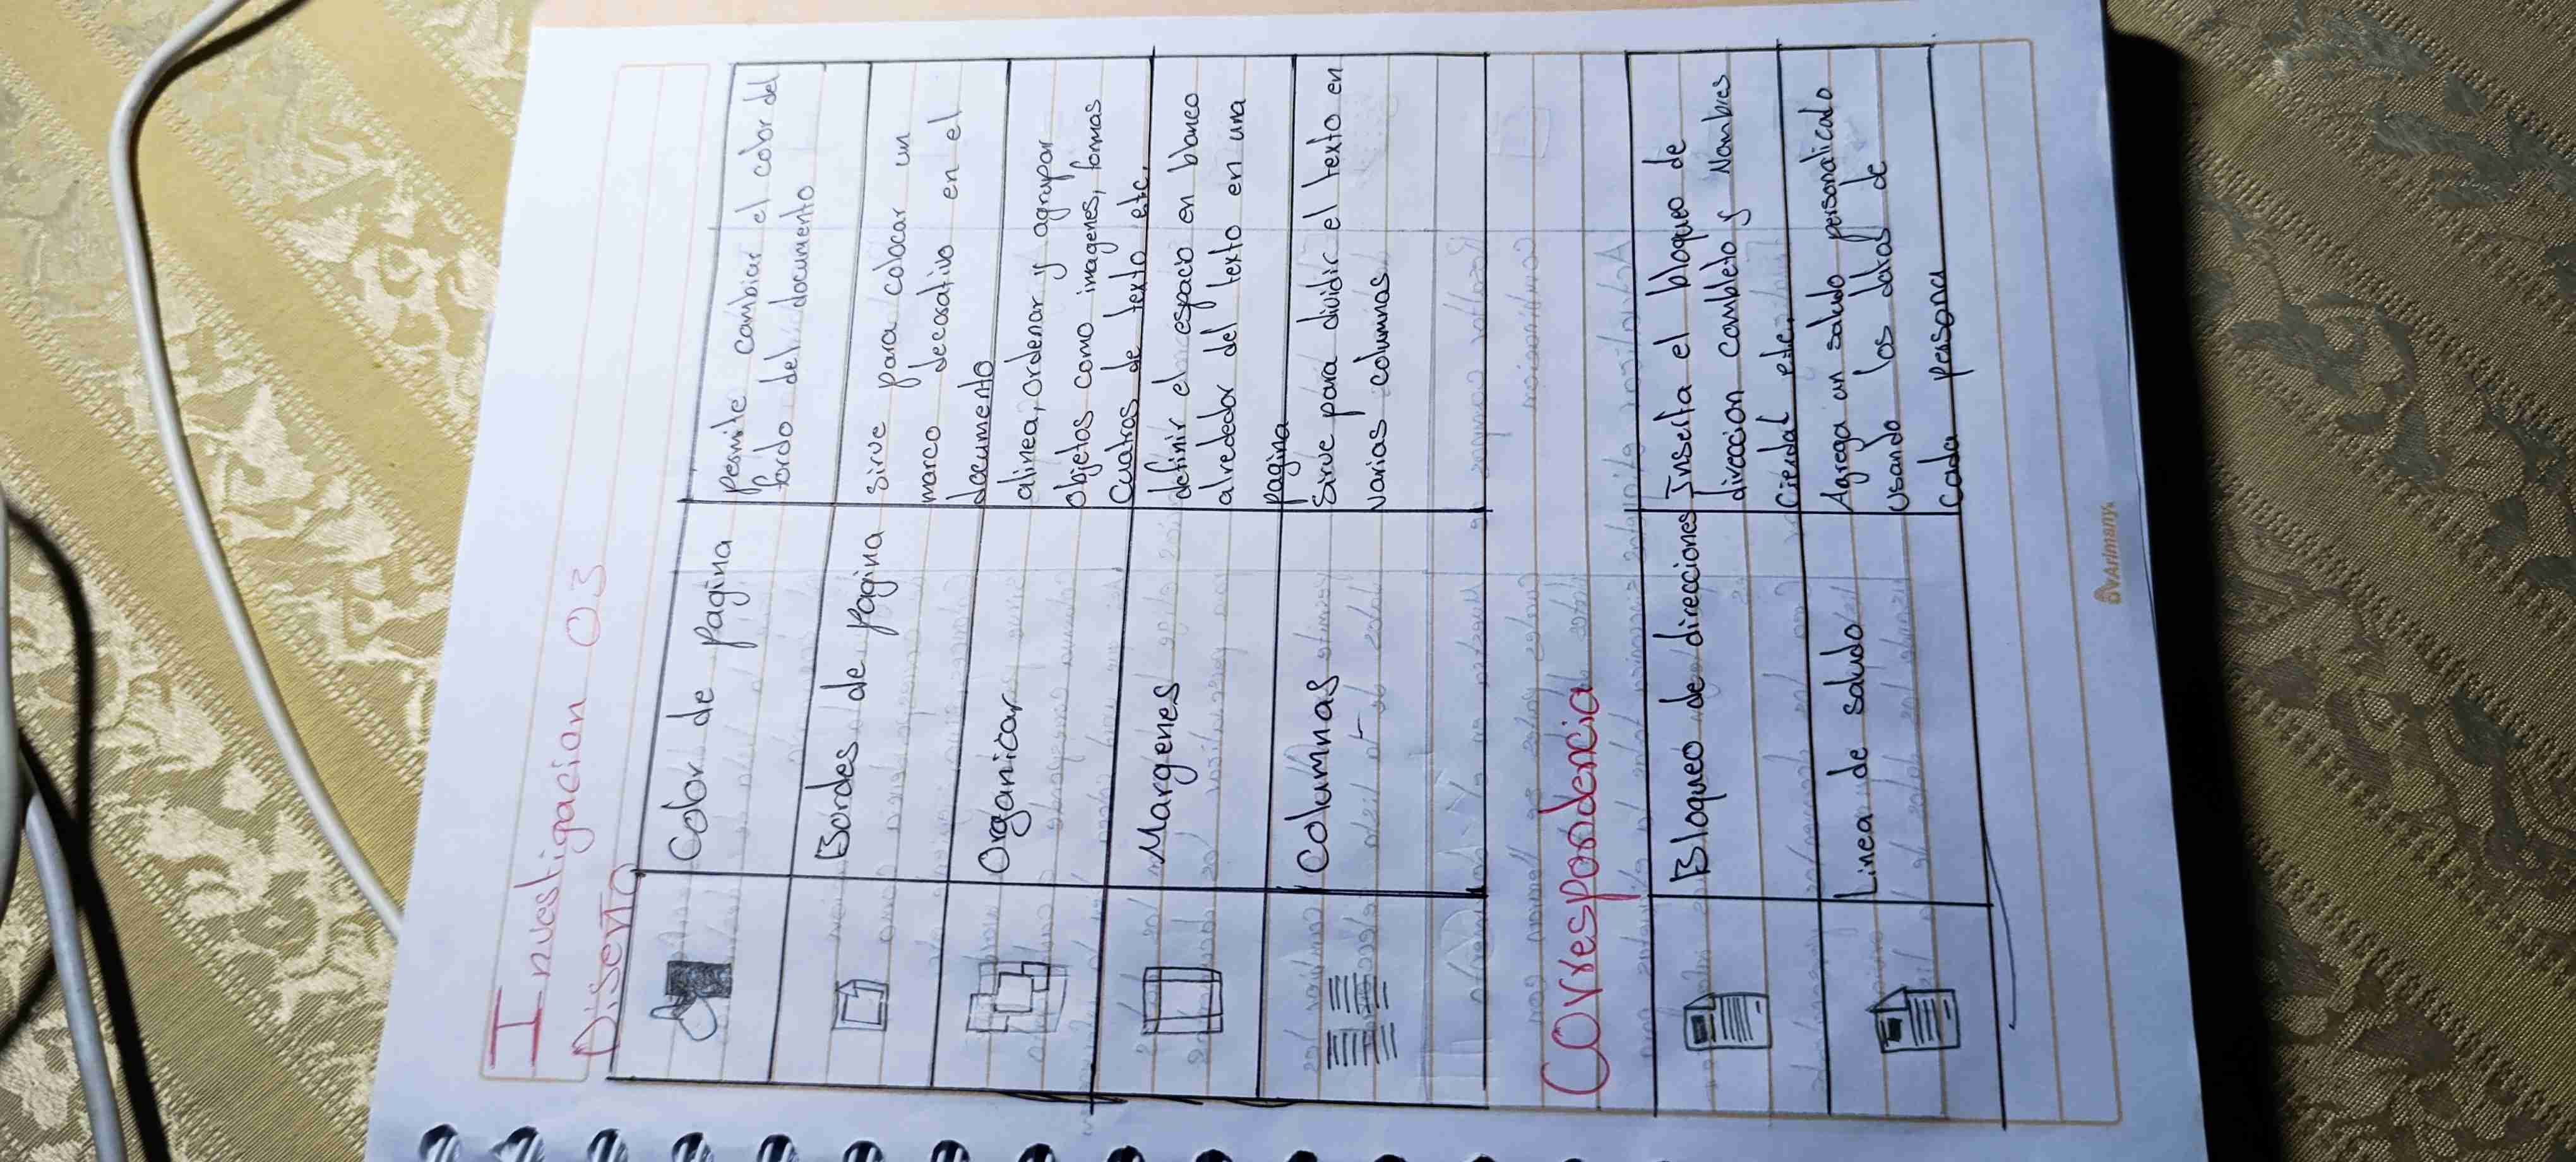 Investigacion 03
Diseño
Color de pagina
permite cambiar el color del
fondo del documento
Bordes de pagina
sirve para colocar un
marco decorativo en el
documento
Organicar
alinea, ordenar y agrupar
objetos como imagenes, formas
Cuatros de texto etc.
Margenes
definir el espacio en blanco
alrededor del texto en una
pagina
Columnas
Sirve para dividir el texto en
varias columnas
Correspondencia
Bloqueo de direcciones
Inserta el bloqueo de
direccion combleto y Nombres
etc.
Linea de saludo
Agrega un saludo personalicado
Usando los datos de
Cada persona
Arimany